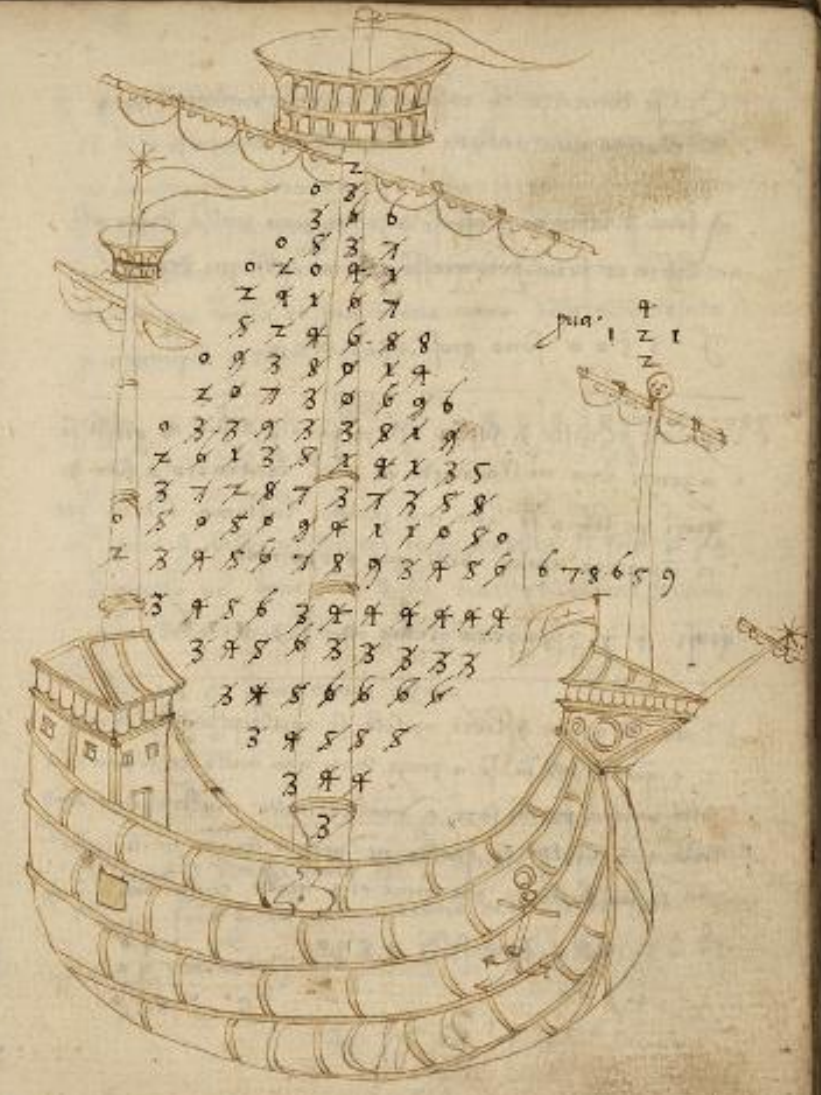 2
0 3
3 0 6
0 5 3 7
0 2 0 4 1
2 4 1 6 7
5 2 4 6 8 8
pua. 4
1 2 1
2
0 9 3 8 0 1 4
2 0 7 3 0 6 9 6
0 3 3 9 3 3 8 1 9
2 0 1 3 5 1 4 1 3 5
3 7 7 2 8 7 3 7 3 5 8
0 5 0 5 0 9 4 1 1 0 5 0
2 3 4 5 6 7 8 9 3 4 5 6 | 6 7 8 6 5 9
3 4 5 6 3 4 4 4 4 4 4
3 4 5 6 3 3 3 3 3
3 4 5 6 6 6 6
3 4 5 5 5
3 4 4
3